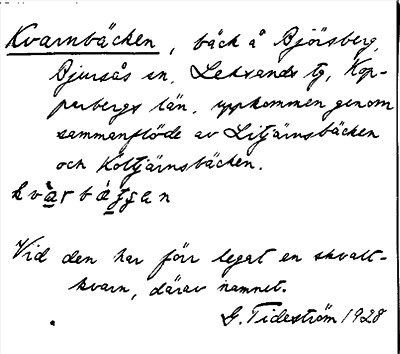 Kvarnbäcken, bäck å Björsberg,
Bjursås sn, Leksands tg, Kop-
parbergs län, uppkommen genom
sammanflöde av Litjärnsbäcken
och Koltjärnsbäcken.
Vid den har förr legat en skvalt-
kvarn, därav namnet.
G. Tideström 1928